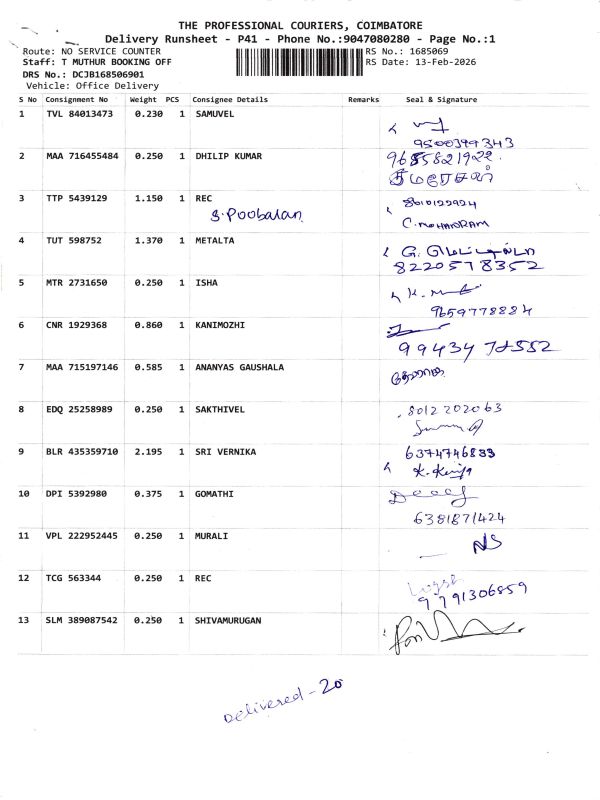 THE PROFESSIONAL COURIERS, COIMBATORE
Delivery Runsheet - P41 - Phone No.:9047080280 - Page No.:1
Route: NO SERVICE COUNTER RS No.: 1685069
Staff: T MUTHUR BOOKING OFF RS Date: 13-Feb-2026
DRS No.: DCJB168506901
Vehicle: Office Delivery
S No Consignment No Weight PCS Consignee Details Remarks Seal & Signature
1 TVL 84013473 0.230 1 SAMUVEL
9500399343
2 MAA 716455484 0.250 1 DHILIP KUMAR 9685821922
குமரேசன்
3 TTP 5439129 1.150 1 REC 8610122924
S. Poobalan C. MOHANDRAM
4 TUT 598752 1.370 1 METALTA G. மெட்டில்டா
8220578352
5 MTR 2731650 0.250 1 ISHA
9659778884
6 CNR 1929368 0.860 1 KANIMOZHI
7 MAA 715197146 0.585 1 ANANYAS GAUSHALA
8 EDQ 25258989 0.250 1 SAKTHIVEL 8012202063
9 BLR 435359710 2.195 1 SRI VERNIKA 6374746833
10 DPI 5392980 0.375 1 GOMATHI
6381871424
11 VPL 222952445 0.250 1 MURALI NS
12 TCG 563344 0.250 1 REC
9791306859
13 SLM 389087542 0.250 1 SHIVAMURUGAN
Delivered - 20